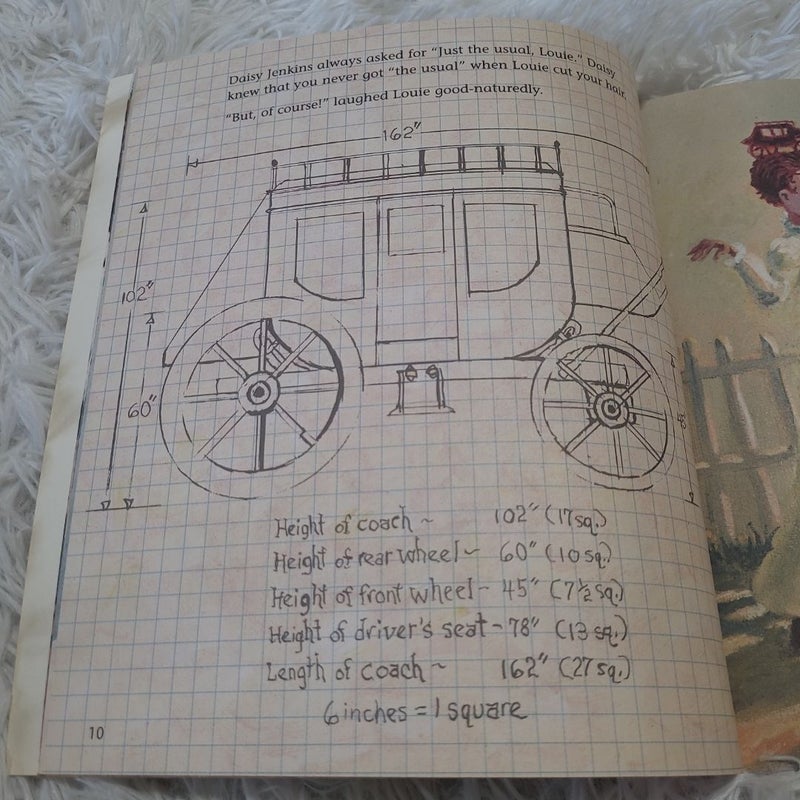 Daisy Jenkins always asked for “Just the usual, Louie.” Daisy
knew that you never got “the usual” when Louie cut your hair.
“But, of course!” laughed Louie good-naturedly.
162"
102"
60"
Height of coach ~ 102" (17 sq.)
Height of rear wheel ~ 60" (10 sq.)
Height of front wheel ~ 45" (7½ sq.)
Height of driver's seat ~ 78" (13 sq.)
Length of coach ~ 162" (27 sq.)
6 inches = 1 square
10